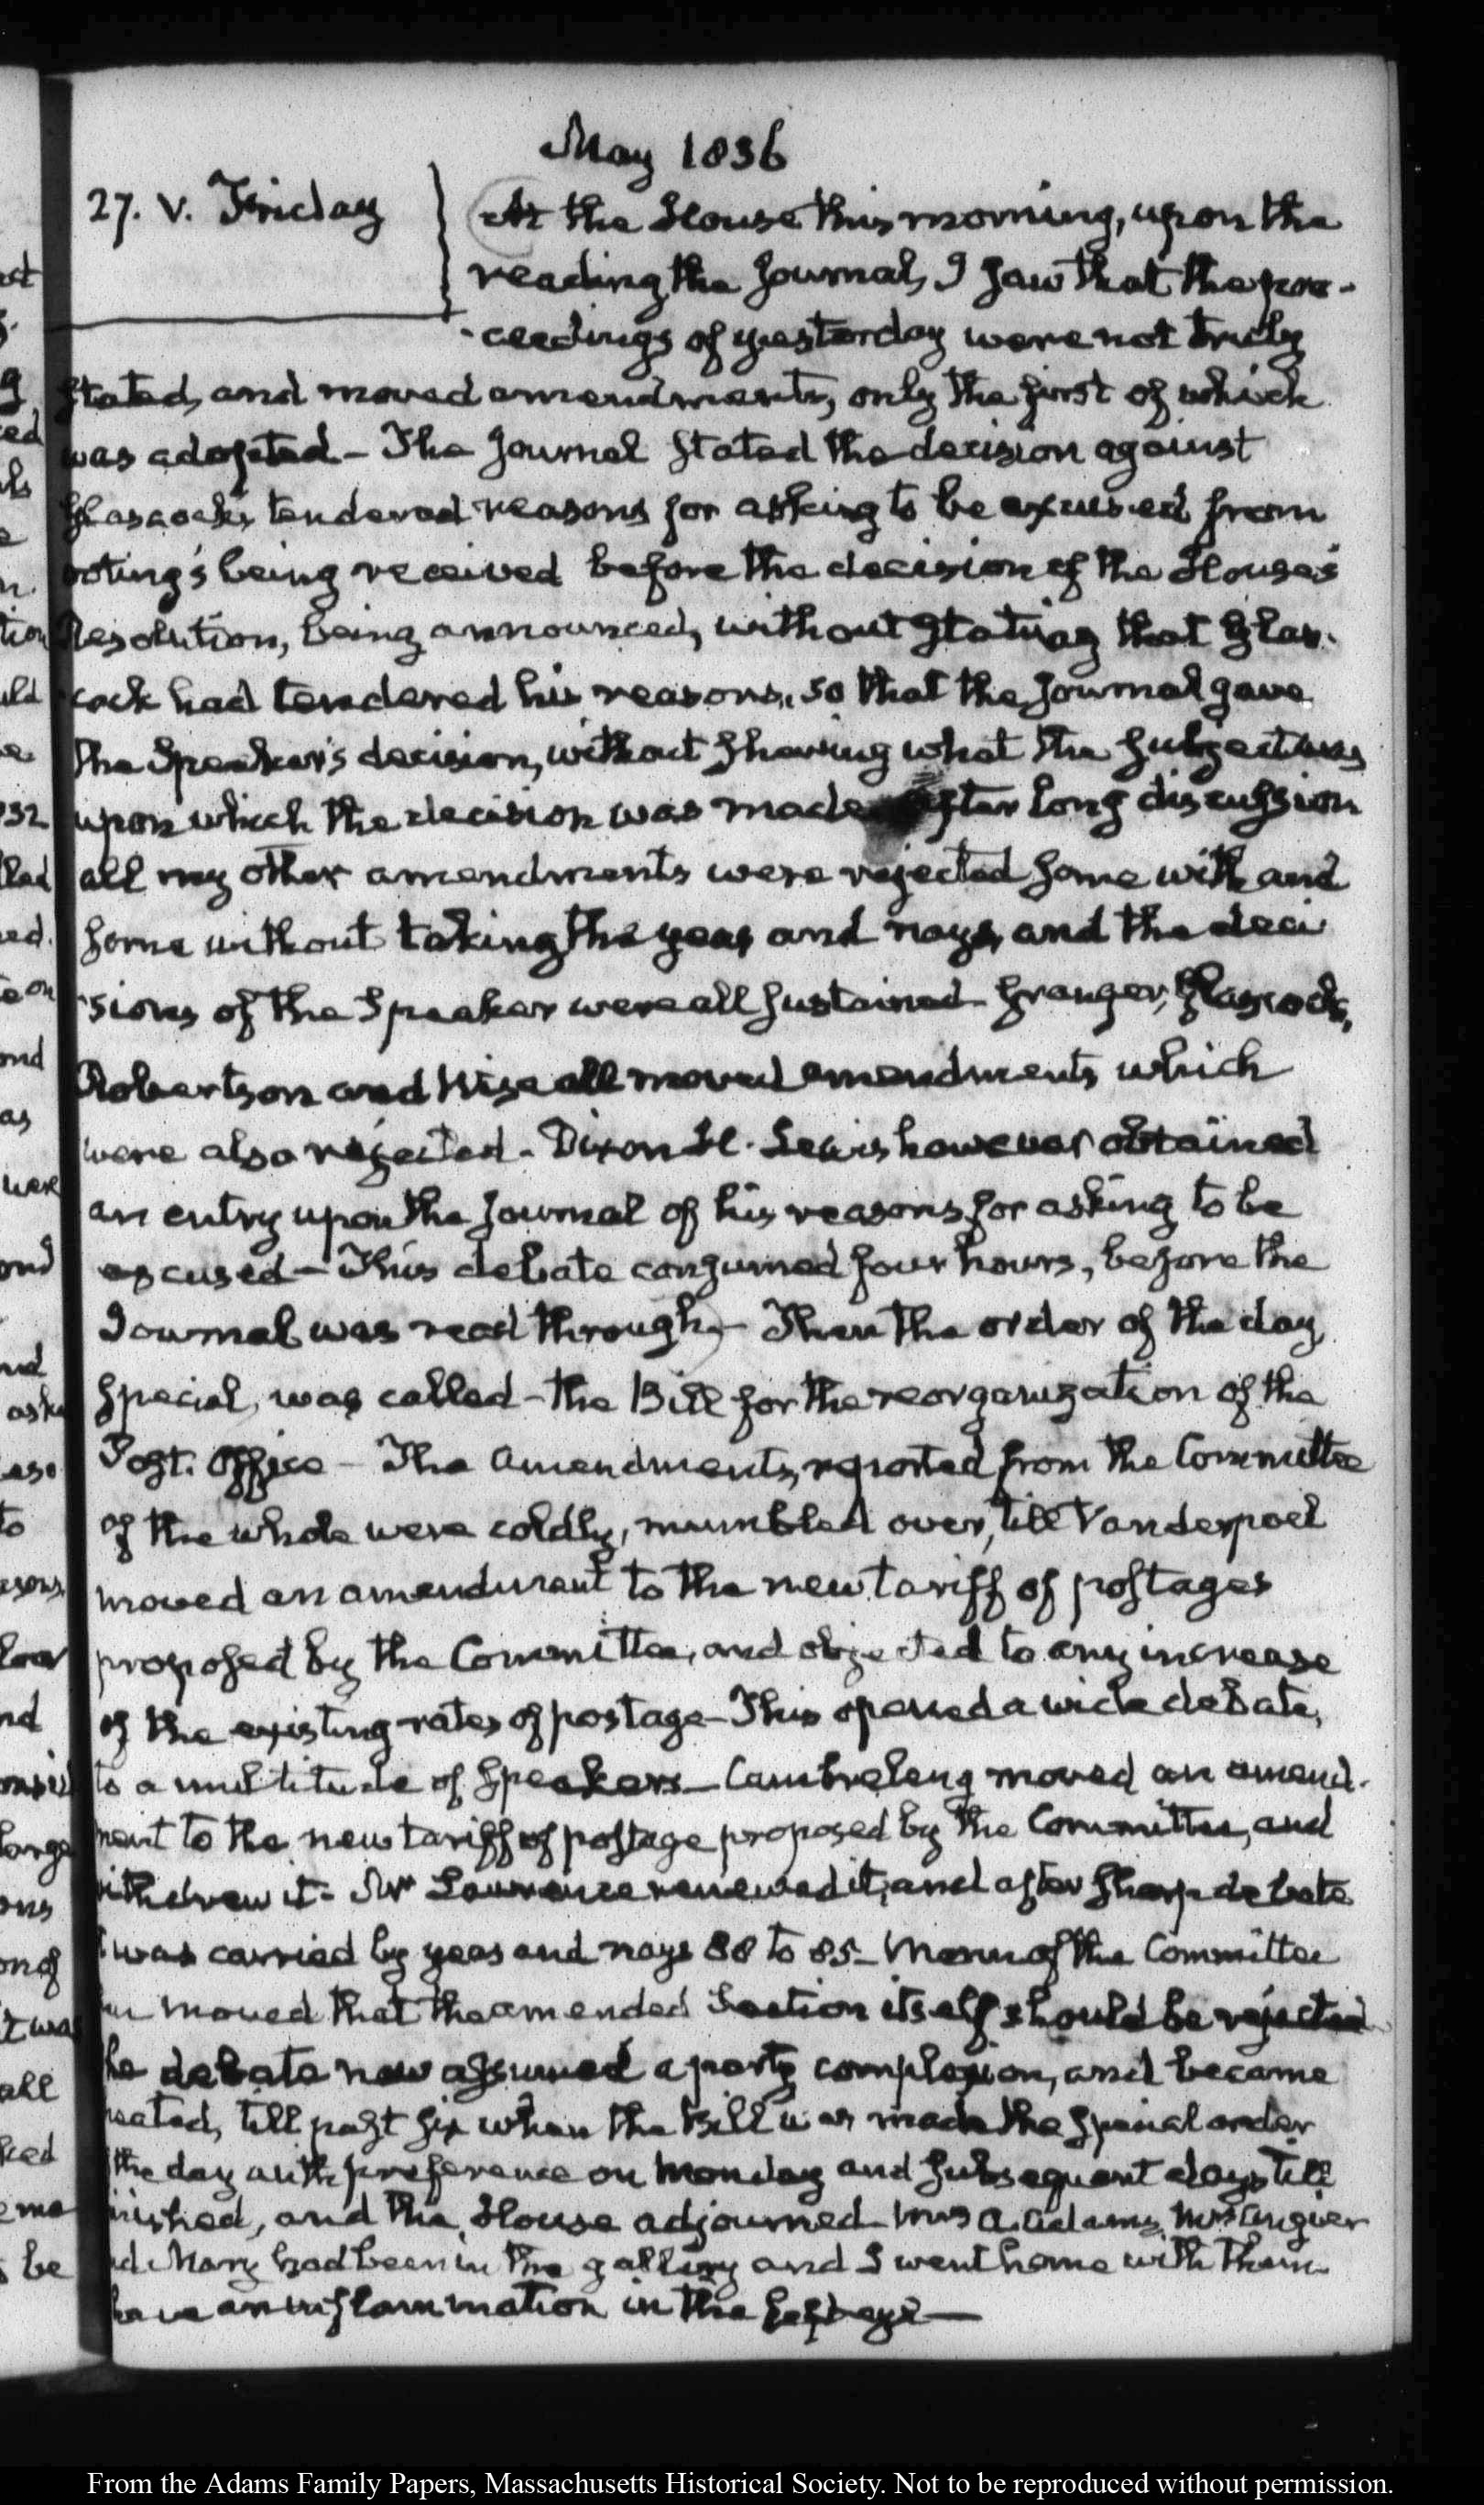 May 1836
27. V. Friday
At the House this morning, upon the
reading the Journal, I saw that the pro-
-ceedings of yesterday were not truly
stated, and moved amendments, only the first of which
was adopted – The Journal stated the decision against
Glascock's tendered reasons for asking to be excused from
voting's being received before the decision of the House's
Resolution, being announced, without stating that Glas-
cock had tendered his reasons, so that the Journal gave
the Speaker's decision, without shewing what the subject was
upon which the decision was made after long discussion
all my other amendments were rejected some with and
some without taking the yeas and nays, and the deci
-sions of the Speaker were all sustained – Granger, Glascock,
Robertson and Wise all moved amendments which
were also rejected – Dixon H. Lewis however obtained
an entry upon the Journal of his reasons for asking to be
excused – This debate consumed four hours, before the
Journal was read through – Then the order of the day,
special, was called – the Bill for the reorganization of the
Post-Office – The amendments, reported from the Committee
of the whole were coldly, mumbled over, till Vanderpoel
moved an amendment to the new tariff of postages
proposed by the Committee, and objected to any increase
of the existing rates of postage – This opened a wide debate,
to a multitude of Speakers – Cambreleng moved an amend-
ment to the new tariff of postage proposed by the Committee, and
withdrew it – Mr Lawrence renewed it, and after sharp debate
it was carried by yeas and nays 88 to 85 – Mann of the Committee
moved that the amended Section itself should be rejected
The debate now assumed a party complexion, and became
heated, till past six when the Bill was made the special order
the day with preference on Monday and subsequent days till
finished, and the House adjourned – Mrs A. Adams, Mrs Angier
and Mary had been in the gallery and I went home with them
have an inflammation in the left eye —
From the Adams Family Papers, Massachusetts Historical Society. Not to be reproduced without permission.